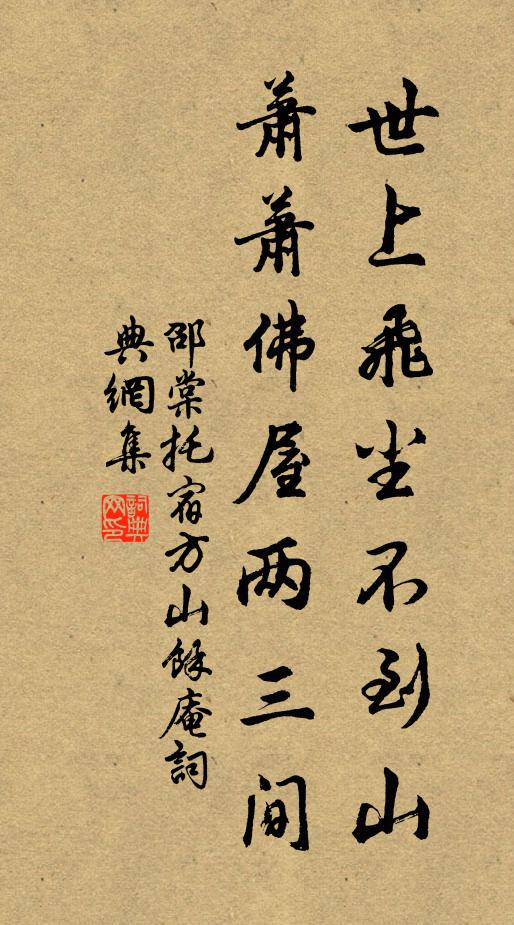 世上飛尘不到山
蕭蕭佛屋两三间
邵棠托宿方山餘庵詞
典網集
詞典
网印